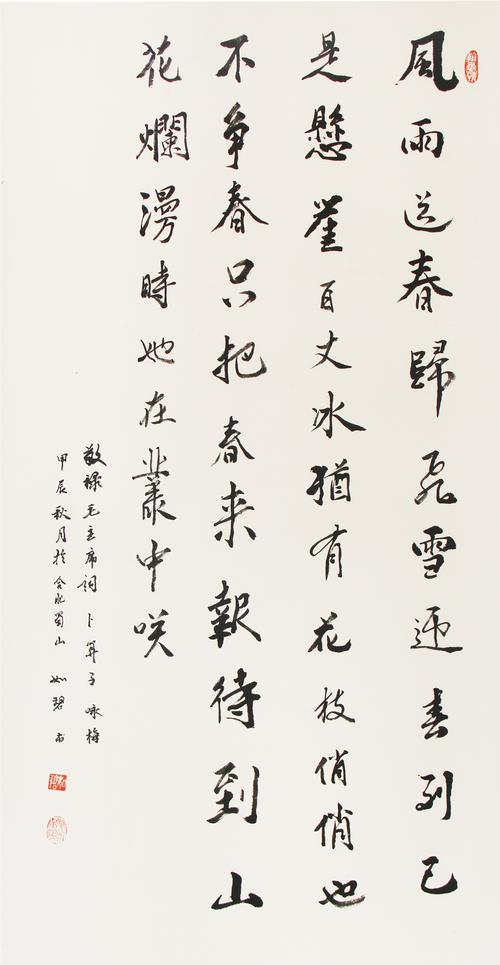 風雨送春歸飛雪迎春到已
是懸崖百丈冰猶有花枝俏俏也
不争春只把春来報待到山
花爛漫時她在叢中咲
敬禄毛主席詞卜算子咏梅
甲辰秋月於合肥蜀山 如碧书